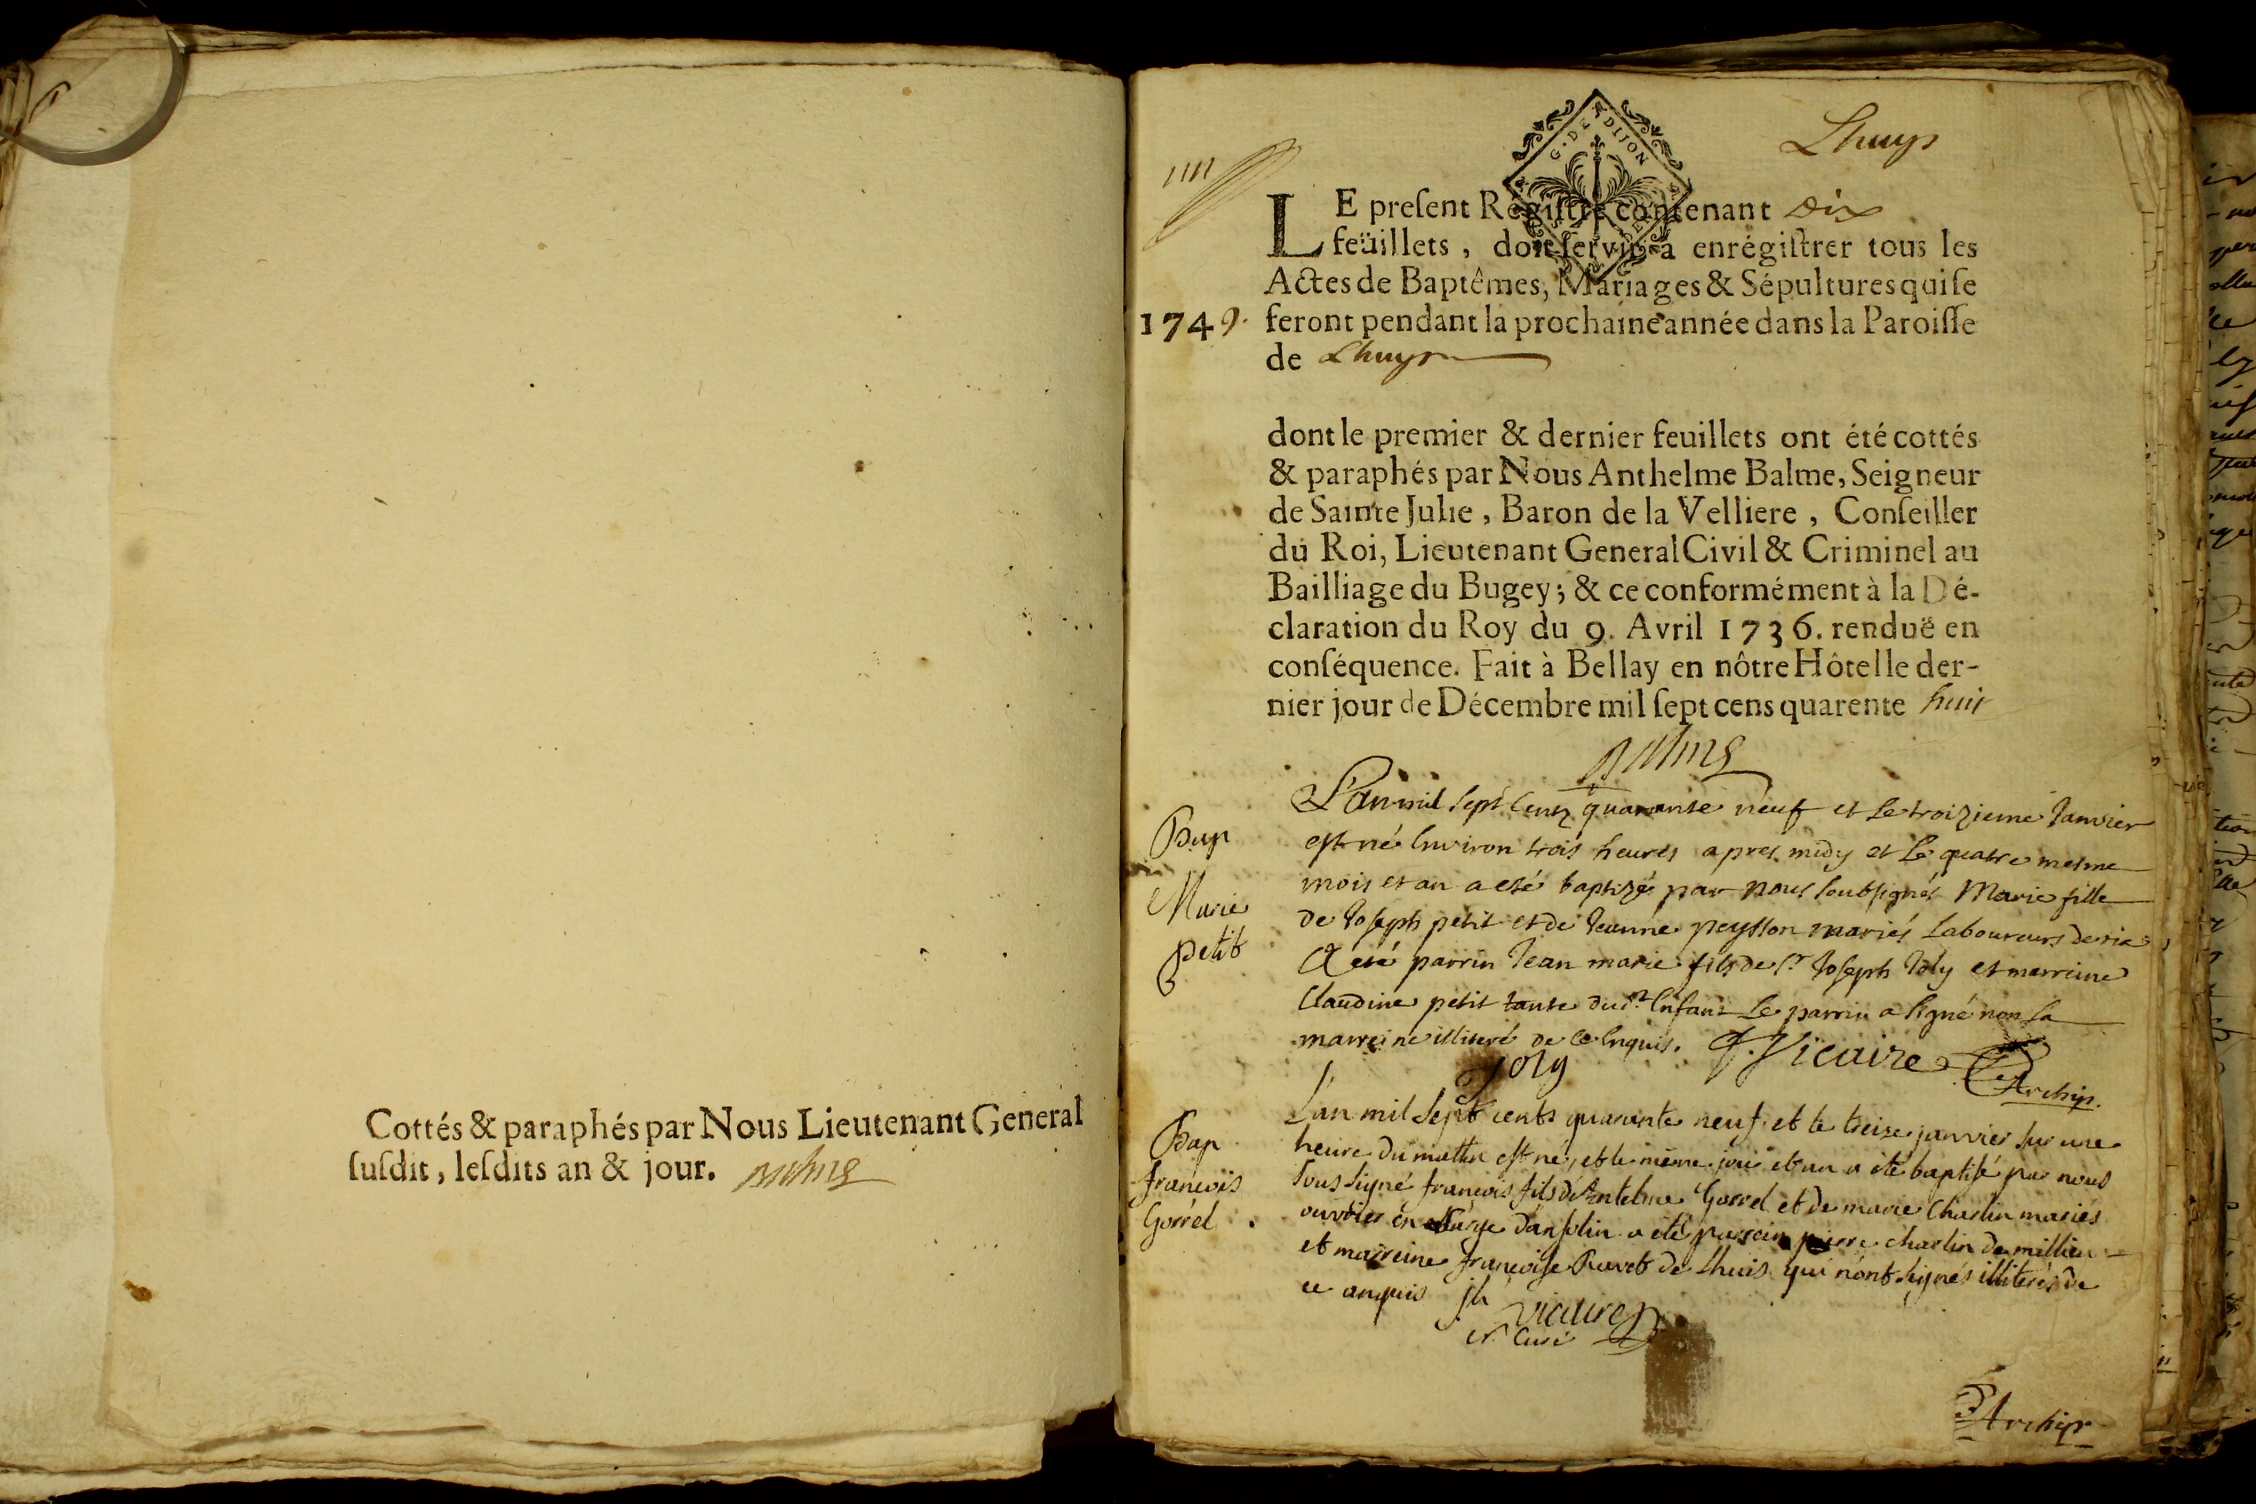 Cottés & paraphés par Nous Lieutenant General
suſdit, leſdits an & jour. Balme
Lhuys
G. DE DIJON
LE preſent Régiſtre contenant Dix
feüillets, doit ſervir à enrégiſtrer tous les
Actes de Baptêmes, Mariages & Sépultures qui ſe
1749. feront pendant la prochaine année dans la Paroiſſe
de Lhuys
dont le premier & dernier feuillets ont été cottés
& paraphés par Nous Anthelme Balme, Seigneur
de Sainte Julie, Baron de la Velliere, Conſeiller
du Roi, Lieutenant General Civil & Criminel au
Bailliage du Bugey; & ce conformément à la Dé-
claration du Roy du 9. Avril 1736. renduë en
conſéquence. Fait à Bellay en nôtre Hôtel le der-
nier jour de Décembre mil ſept cens quarente huit
Balme
Bap
Marie
petit
L'an mil sept cents quarante neuf et le troizieme Janvier
est né Environ trois heures apres midy et le quatre mesme
mois et an a eté baptizé par nous soubsignés Marie fille
de Joseph petit et de Jeanne peysson mariés Laboureurs de
A eté parrin Jean marie fils de Sr Joseph Joly et marreine
Claudine petit tante dud.t Enfant Le parrin a signé non la
marreine illiteré de ce Enquis. Vicaire
joly
Archip.
Bap
francois
Gorrel
L'an mil sept cents quarante neuf et le treize janvier sur une
heure du matin est né, et le même jour et an a été baptisé par nous
sous signé francois fils d'Antelme Gorrel et de marie Charlin mariés
ouvriers en a été parrein pierre charlin de millieu
et marreine francoise de Lhuis qui n'ont signés illiterés de
ce enquis vicaire
Curé
Archip